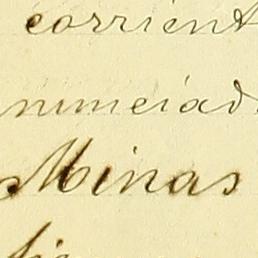 corrient
nunciad
Minas